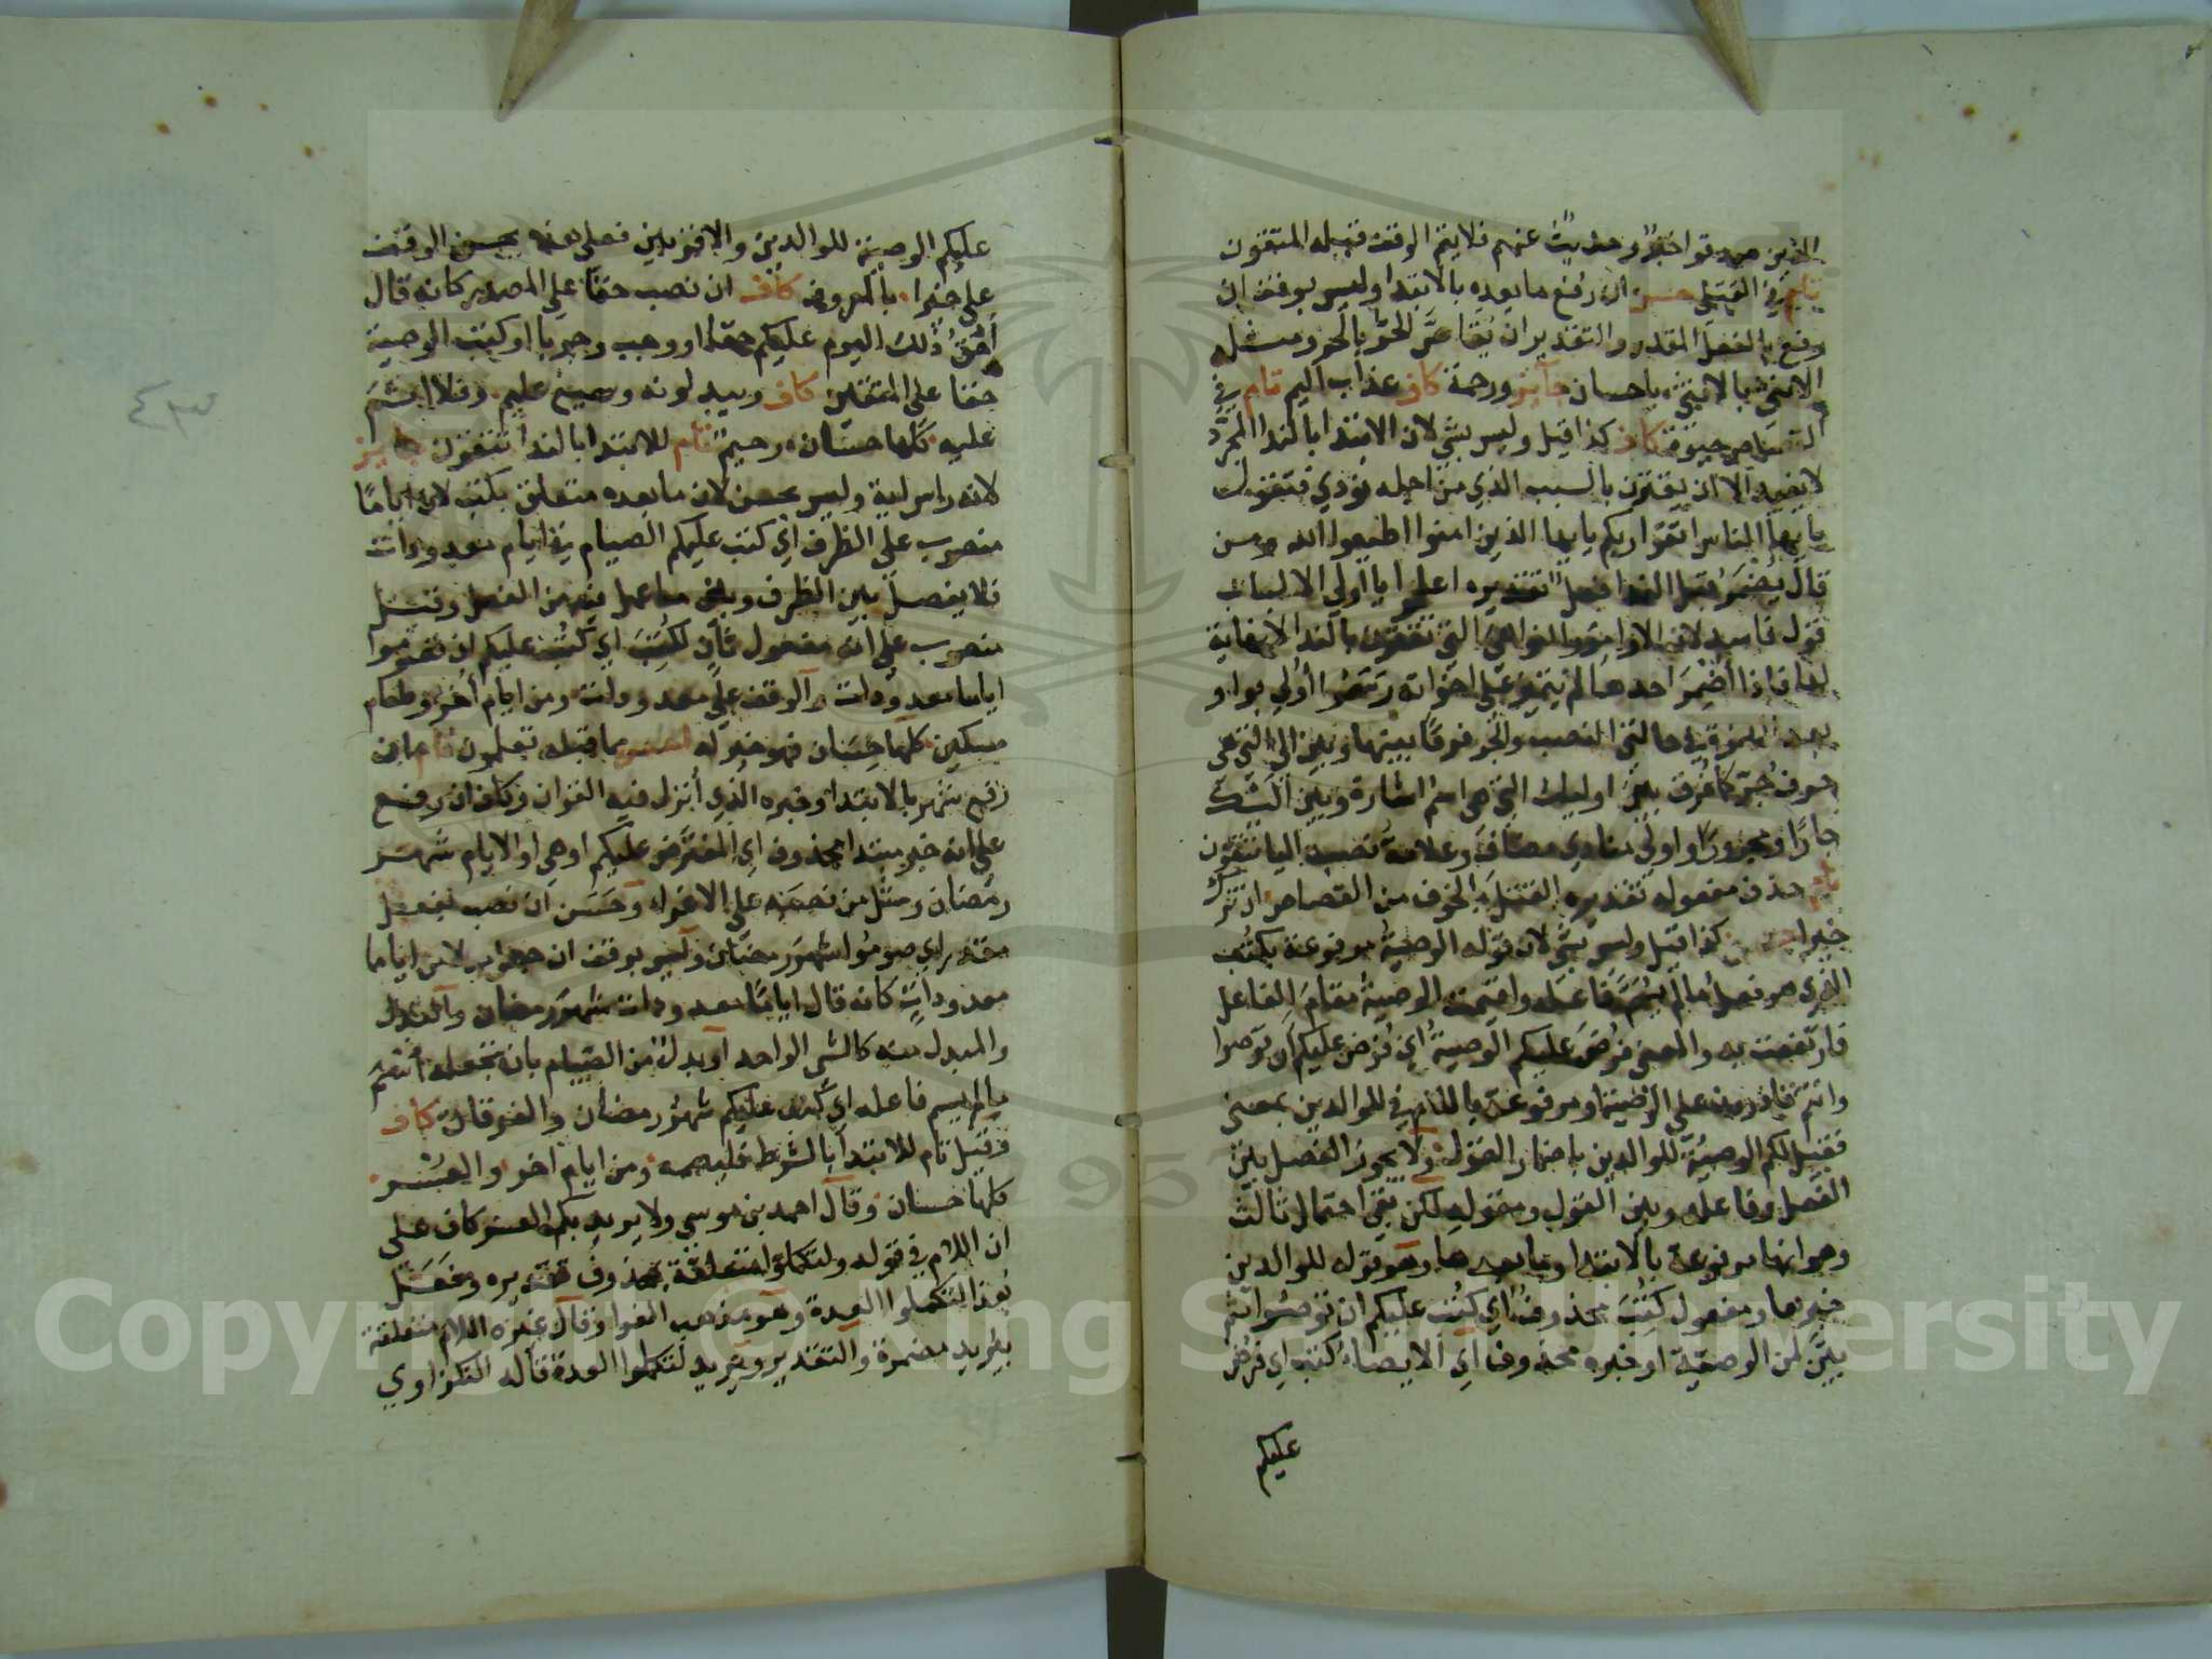 الذين صدقوا خبر وحديث عنهم فلا يتم الوقف قبله المتقون
تام في القتلى حسن ان رفع ما بعده بالابتدا وليس بوقف ان
رفع بالفعل المقدر والتقدير ان يقاص الحر بالحر ومثله
الانثى بالانثى باحسان جايز ورحمة كاف عذاب اليم تام في
القصاص حيوة كاف كذا قيل وليس بشي لان الابتدا بالندا المجرد
لا يفيد الا ان يقترن بالسبب الذي من اجله نودي فتقول
يا يها الناس اتقوا ربكم يا يها الذين امنوا اطيعوا الله ومن
قال يضمر قبل الندا فعل تقديره اعلموا يا اولي الالباب
قوله فاسد لان الاوامر والنواهي التي تقترن بالندا لا نهاية
لها فاذا اضمر احدها لم يتميز عن اخواته رسموا اولي بواو
بعد الهمزة في حالتي النصب والجر فرقا بينها وبين الى التي هي
حرف جر كما فرق بين اوليك التي هي اسم اشارة وبين اليك
جارا ومجرورا واولي منادى مضاف وعلامة نصبه اليا تتقون
تام حذف مفعوله تقديره القتل بالخوف من القصاص ان ترك
خيرا حسن كذا قيل وليس بشي لان قوله الوصية مرفوعة بكتب
الذي هو فعل ما لم يسم فاعله واقيمت الوصية مقام الفاعل
فارتفعت به والمعنى فرض عليكم الوصية اي فرض عليكم ان توصوا
وانتم قادرون على الوصية او مرفوعة باللام في للوالدين بمعنى
فقيل لكم الوصية للوالدين باضمار القول ولا يجوز الفصل بين
الفعل وفاعله وبين القول ومقوله لكن بقي احتمال ثالث
وهو انها مرفوعة بالابتدا وما بعدها وهو قوله للوالدين
خبرها ومفعول كتب محذوف اي كتب عليكم ان توصوا ثم
بين لمن الوصية او خبره محذوف اي الايصاء كتب اي فرض
عليكم
عليكم الوصية للوالدين والاقربين فعلى هذا يحسن الوقف
على خيرا بالمعروف كاف ان نصب حقا على المصدر كانه قال
احق ذلك اليوم عليكم حقا او وجب وجوبا او كتب الوصية
حقا على المتقين كاف ويبدلونه وسميع عليم وفلا اثم
عليه كلها حسان رحيم تام للابتدا بالندا تتقون جايز
لانه راس اية وليس بحسن لان ما بعده متعلق بكتب لان اياما
منصوب على الظرف اي كتب عليكم الصيام في ايام معدودات
فلا يفصل بين الظرف وبين ما عمل فيه من الفعل وقيل
منصوب على انه مفعول ثان لكتب اي كتب عليكم ان تصوموا
اياما معدودات والوقف على معدودات ومن ايام اخر وطعام
مسكين كلها حسان فهو خير له احسن مما قبله تعلمون تام ان
رفع شهر بالابتدا وخبره الذي انزل فيه القران وكاف ان رفع
على انه خبر مبتدا محذوف اي المفترض عليكم او هي او الايام شهر
رمضان ومثل من نصبه على الاغرا وحسن ان نصب بفعل
مقدر اي صوموا شهر رمضان وليس بوقف ان جعل بدلا من اياما
معدودات كانه قال اياما معدودات شهر رمضان والبدل
والمبدل منه كالشي الواحد او بدل من الصيام بان تجعله اسم
ما لم يسم فاعله اي كتب عليكم شهر رمضان والفرقان كاف
وقيل تام للابتدا بالشرط فليصمه ومن ايام اخر والعسر
كلها حسان وقال احمد بن موسى ولا يريد بكم العسر كاف على
ان اللام في قوله ولتكملوا متعلقة بمحذوف تقديره وفعل
هذا لتكملوا العدة وهو مذهب الفرا وقال غيره اللام متعلقة
بيريد مضمرة والتقدير ويريد لتكملوا العدة قاله النكزاوي